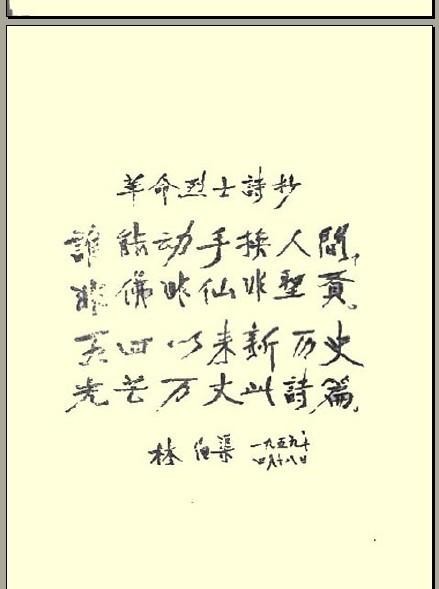 革命烈士詩抄
誰能动手換人間，
非佛非仙非聖賢。
五四以来新历史
光芒万丈此詩篇。
林伯渠 一九五九年
四月十八日